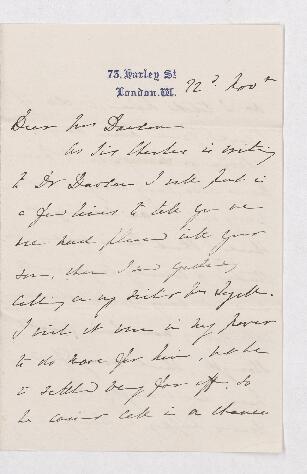 73. Harley St
London. W.
22d Novr
Dear Mrs Dawson
As Sir Charles is writing
to Dr Dawson I will put in
a few lines to tell you we
are much pleased with your
son, when I was yesterday
calling on my sister Mrs
I wish it were in my power
to do more for him, but he
is settled very far off, so
he cannot call in a chance